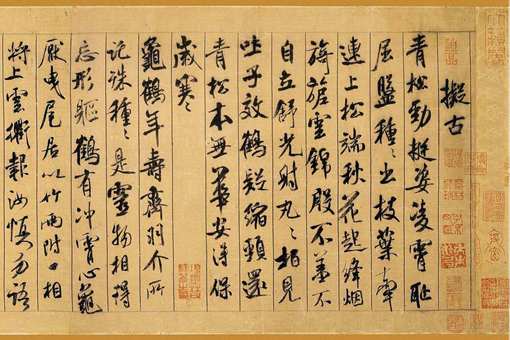 擬古
青松勁挺姿凌霄恥
屈盤種〻出枝葉牽
連上松端秋花起絳烟
旖旎雲錦殷不羞不
自立舒光射丸〻柏見
吐子效鶴疑縮頸還
青松本無華安得保
歲寒
龜鶴年壽齊羽介所
託殊種〻是靈物相得
忘形軀鶴有冲霄心龜
厭曳尾居以竹兩附口相
將上雲衢報汝慎勿語